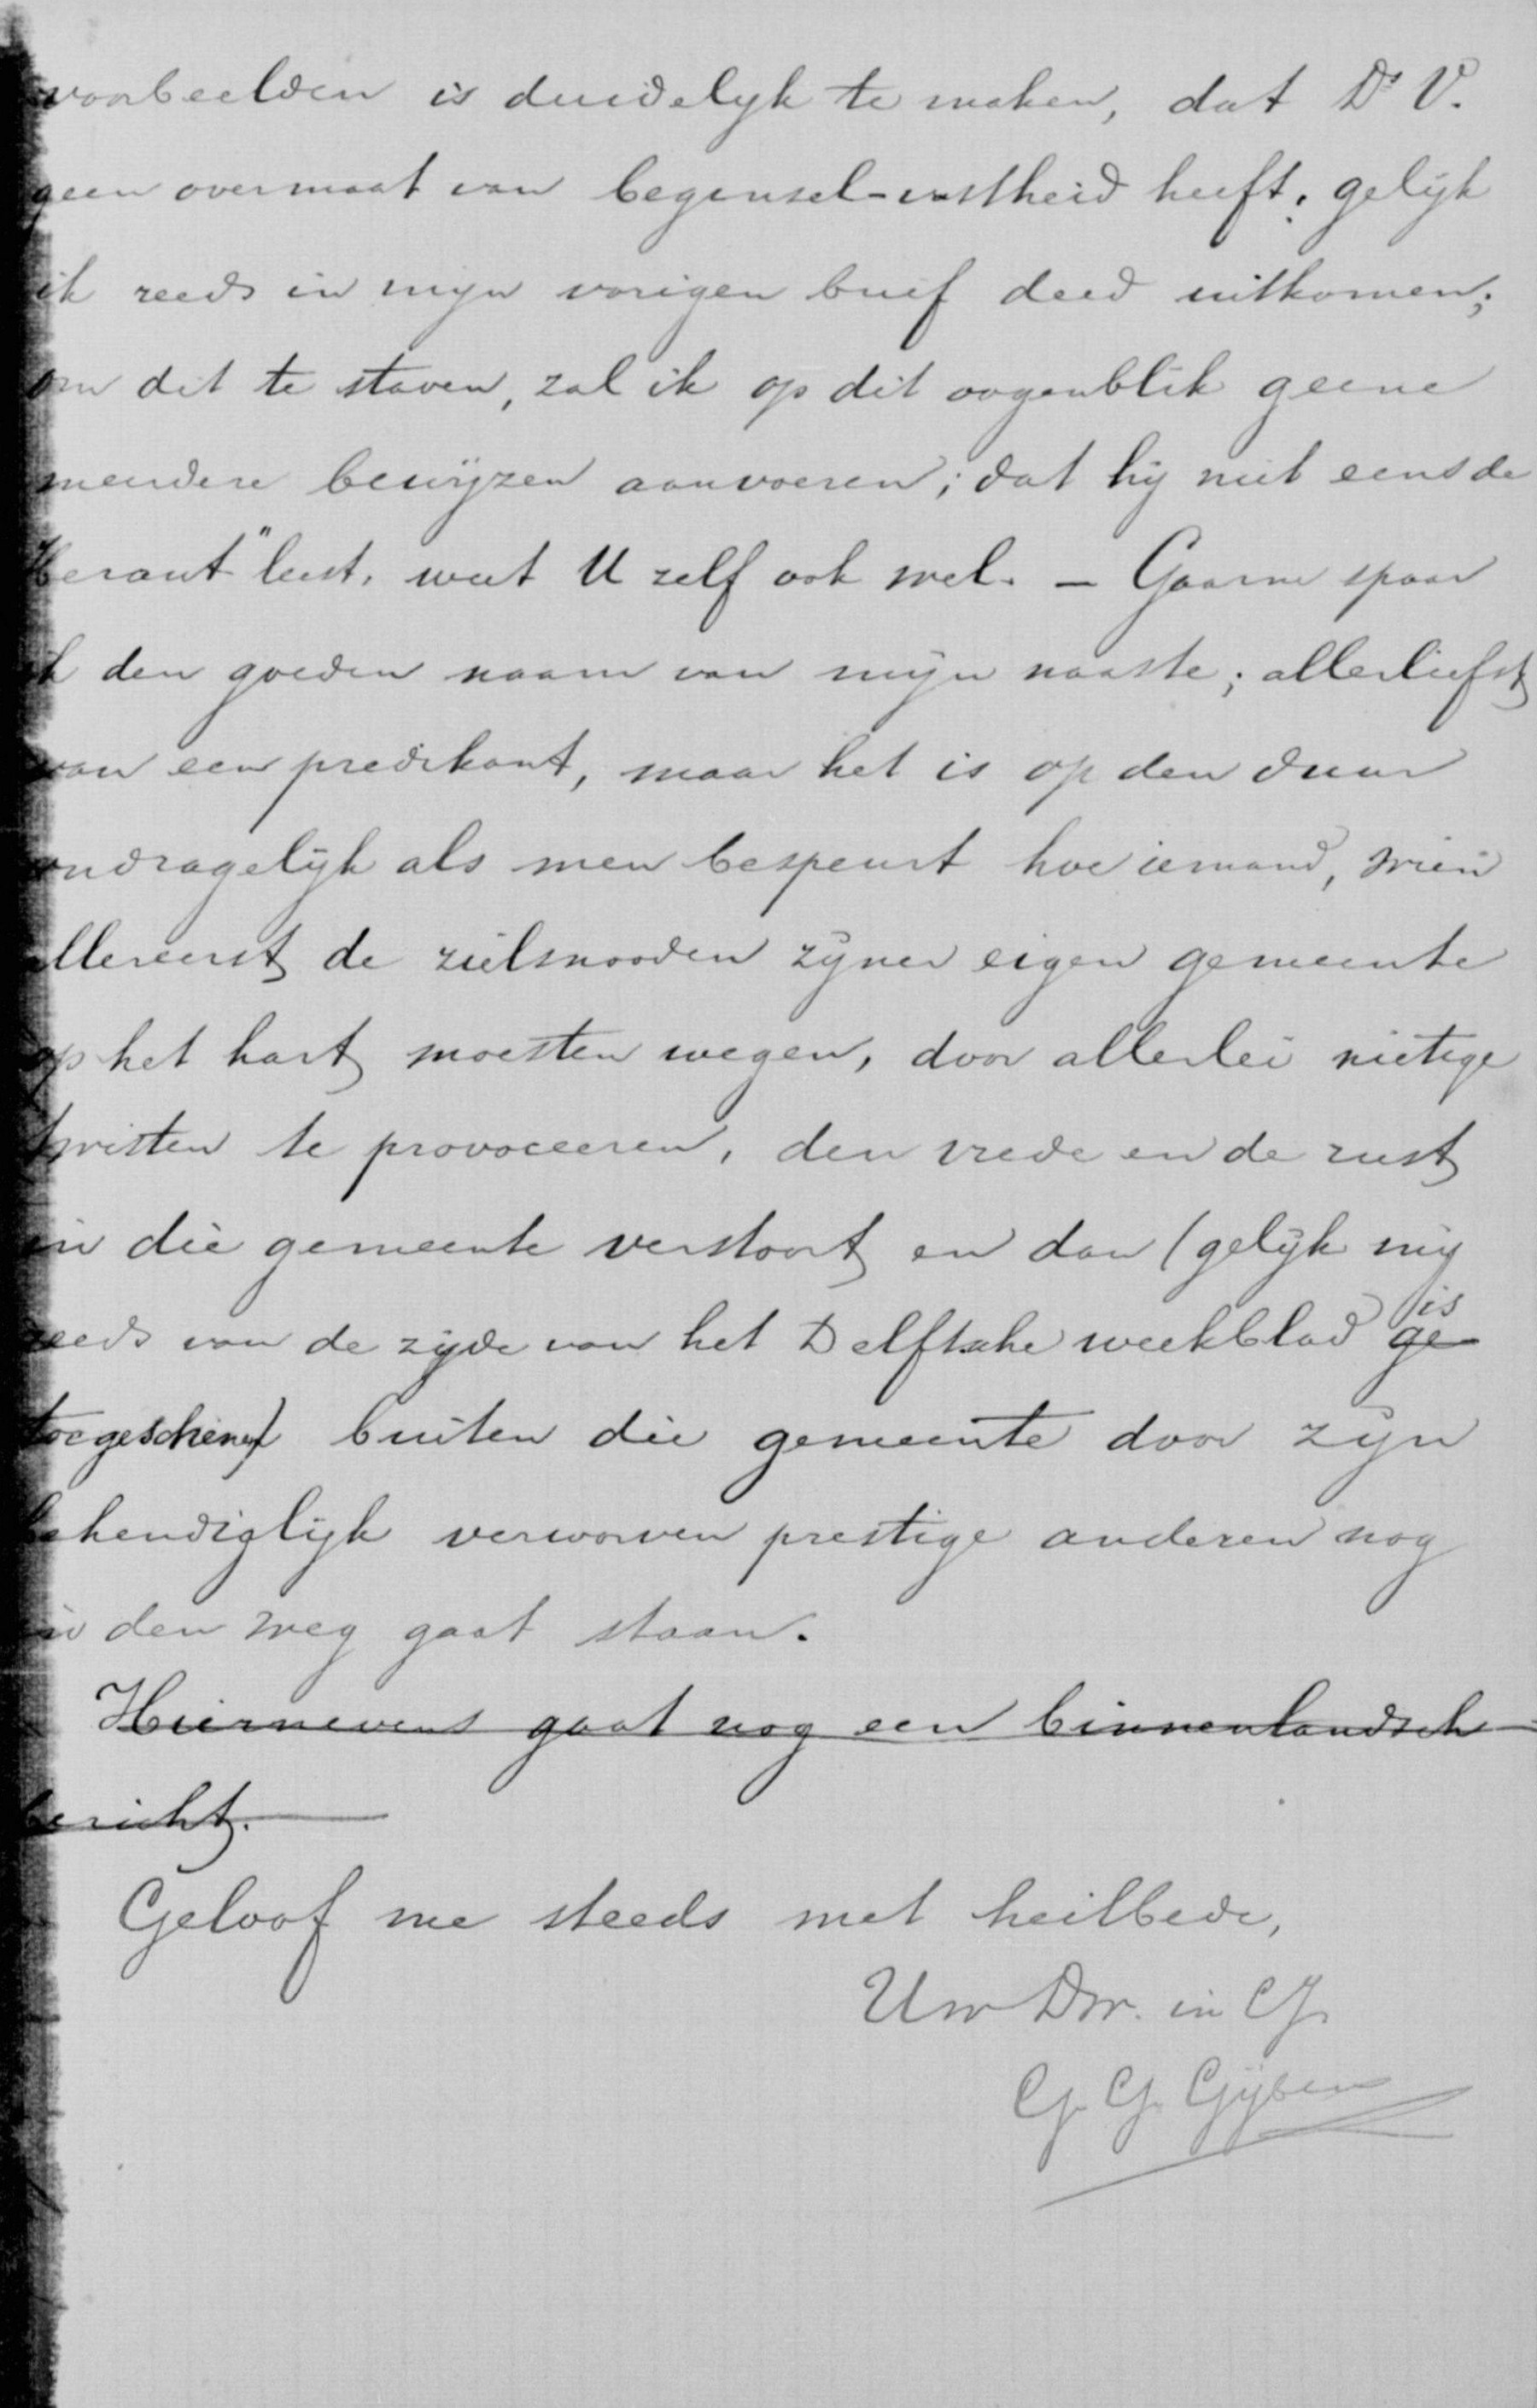 voorbeelden is duidelyk te maken, dat Ds V.
geen overmaat van beginsel-vastheid heeft, gelijk
ik reeds in mijn vorigen brief deed uitkomen;
om dit te staven, zal ik op dit oogenblik geene
meerdere bewijzen aanvoeren; dat hij niet eens de
Heraut" leest, weet U zelf ook wel. — Gaarne spaar
ik den goeden naam van mijn naaste; allerliefst
van een predikant, maar het is op den duur
ondragelijk als men bespeurt hoe iemand, wien
allereerst de zielsnooden zijner eigen gemeente
op het hart moesten wegen, door allerlei nietige
twisten te provoceeren, den vrede en de rust
in die gemeente verstoort en dan (gelijk mij
reeds van de zijde van het Delftsche weekblad ge is
toegeschenen) buiten die gemeente door zijn
behendiglijk verworven prestige anderen nog
in den weg gaat staan.
Hiernevens gaat nog een binnenlandsch
bericht.
Geloof me steeds met heilbede,
Uw Dw. in C.J.
G. G. Gijben